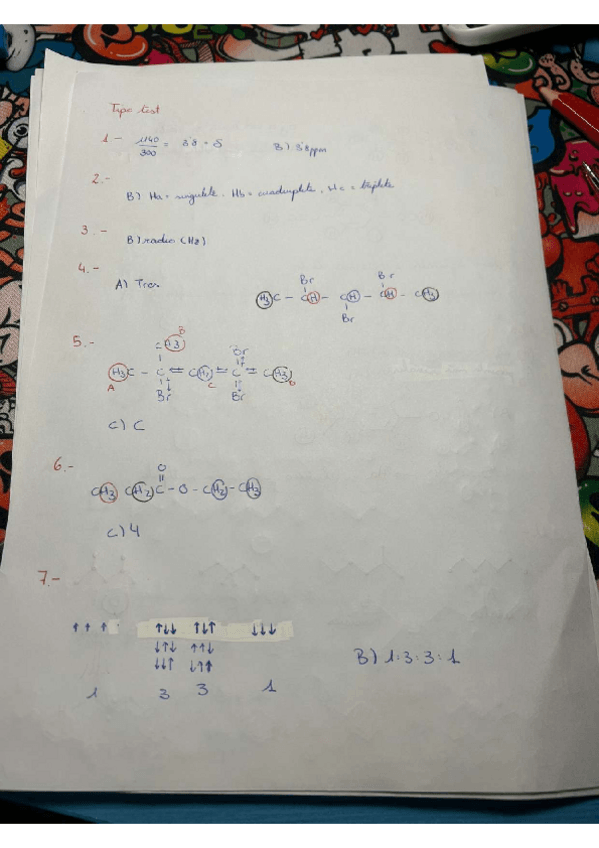 Tipo test
1.- 1140/300 = 3'8 = δ B) 3'8ppm
2.-
B) Ha = singulete, Hb = cuadruplete, Hc = triplete
3.-
B) radio (Hz)
4.-
A) Tres
Br Br
H3C - CH - CH - CH - CH3
Br
5.-
B
CH3 Br
H3C - C - CH2 - C - CH3
A C D
Br Br
C) C
6.-
O
CH3 CH2 C - O - CH2 - CH3
C) 4
7.-
↑↑↑ ↑↓↓ ↑↓↑ ↓↓↓
↓↑↓ ↑↑↓
↓↓↑ ↓↑↑
B) 1:3:3:1
1 3 3 1